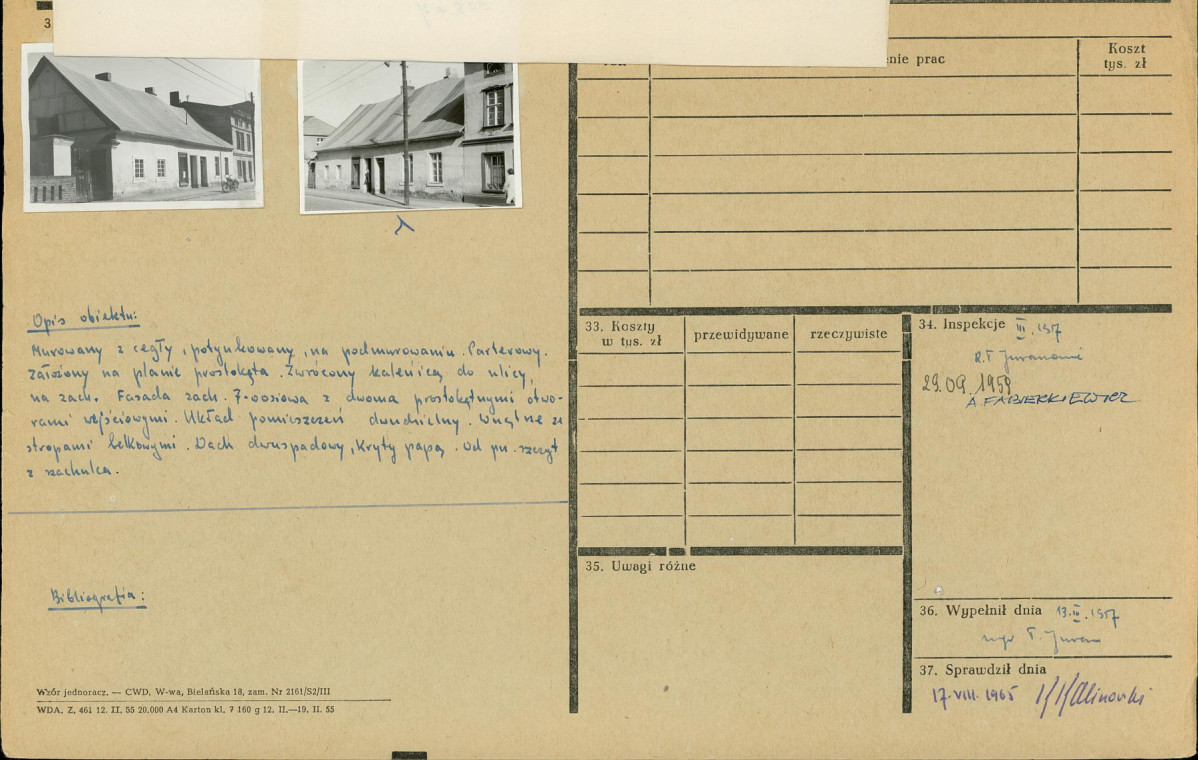 3
nie prac
Koszt
tys. zł
Opis obiektu:
Murowany z cegły, potynkowany, na podmurowaniu. Parterowy.
Założony na planie prostokąta. Zwrócony kalenicą do ulicy,
na zach. Fasada zach. 7-osiowa z dwoma prostokątnymi otwo-
rami wejściowymi. Układ pomieszczeń dwudzielny. Wnętrze ze
stropami belkowymi. Dach dwuspadowy, kryty papą. Od pn. szczyt
z szachulca.
Bibliografia:
Wzór jednoracz. — CWD, W-wa, Bielańska 18, zam. Nr 2161/S2/III
WDA. Z. 461 12. II. 55 20.000 A4 Karton kl. 7 160 g 12. II.—19. II. 55
33. Koszty
w tys. zł
przewidywane
rzeczywiste
34. Inspekcje III. 1957
29.09.1959
A FABIERKIEWICZ
35. Uwagi różne
36. Wypełnił dnia 13. 1957
mgr T.
37. Sprawdził dnia
17. VIII. 1965 Kalinowski